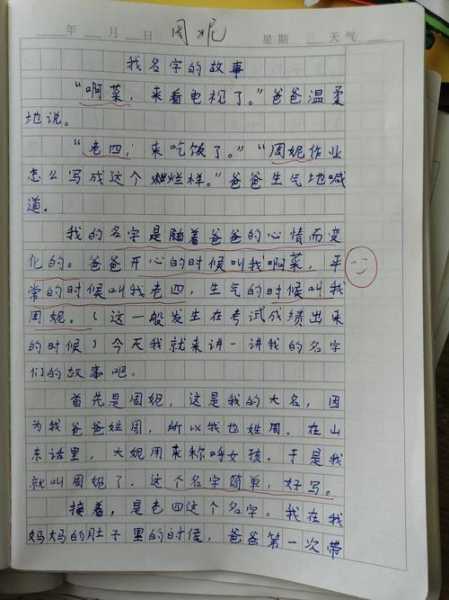 年 月 日 周妮 星期 天气
我名字的故事
“啊菜，来看电视了。”爸爸温柔
地说。
“老四，来吃饭了。”“周妮作业
怎么写成这个烂样。”爸爸生气地喊
道。
我的名字是随着爸爸的心情而变
化的。爸爸开心的时候叫我啊菜，平
常的时候叫我老四，生气的时候叫我
周妮。（这一般发生在考试成绩出来
的时候）今天我就来讲一讲我的名字
们的故事吧。
首先是周妮，这是我的大名，因
为我爸爸姓周，所以我也姓周。在山
东话里，大妮用来称呼女孩。于是我
就叫周妮了。这个名字简单，好写。
接着，是老四这个名字。我在我
妈妈的肚子里的时候，爸爸第一次带